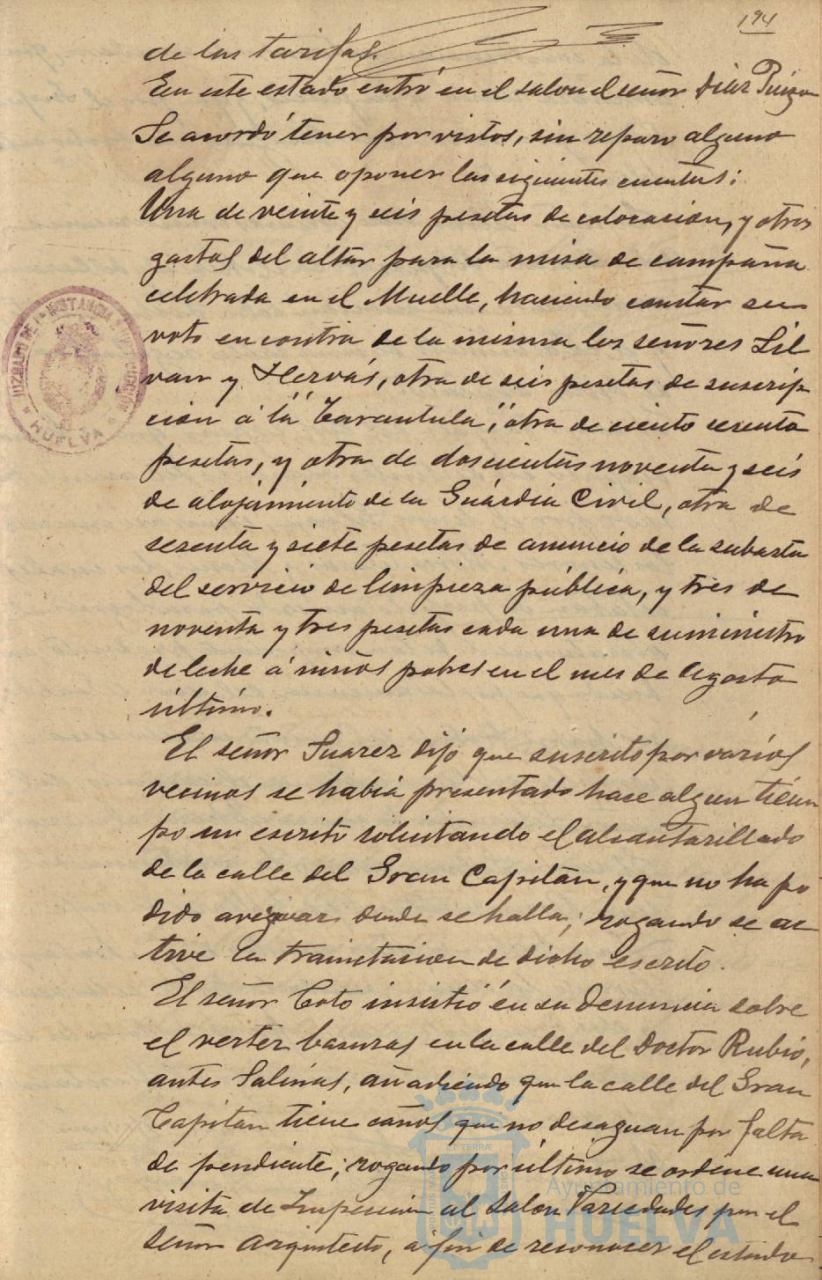 194
de las tarifas.
En este estado entró en el salon el señor Diaz
Se acordó tener por vistos, sin reparo alguno
alguno que oponer las siguientes cuentas:
Una de veinte y seis pesetas de colocacion, y otros
gastos del altar para la misa de campaña
celebrada en el Muelle, haciendo constar su
voto en contra de la misma los señores Sil
van y Hervás, otra de seis pesetas de suscrip
cion á la "Tarantula", otra de ciento sesenta
pesetas, y otra de doscientas noventa y seis
de alojamiento de la Guárdia Civil, otra de
sesenta y siete pesetas de anuncio de la subasta
del servicio de limpieza pública, y tres de
noventa y tres pesetas cada una de suministro
de leche á niños pobres en el mes de Agosto
último.
El señor Suarez dijo que suscrito por vários
vecinos se habia presentado hace algun tiem
po un escrito solicitando el alcantarillado
de la calle del Gran Capitán, y que no ha po
dido averiguar donde se halla; rogando se ac
tive la tramitacion de dicho escrito.
El señor Coto insistió en su denuncia sobre
el verter basuras en la calle del Doctor Rubio,
antes Salinas, añadiendo que la calle del Gran
Capitan tiene caños que no desaguan por falta
de pendiente; rogando por último se ordene una
visita de Inspeccion al Salon Variedades por el
señor Arquitecto, á fin de reconocer el estado
JUZGADO DE 1ª INSTANCIA E INSTRUCCION
HUELVA
Ayuntamiento de
HUELVA